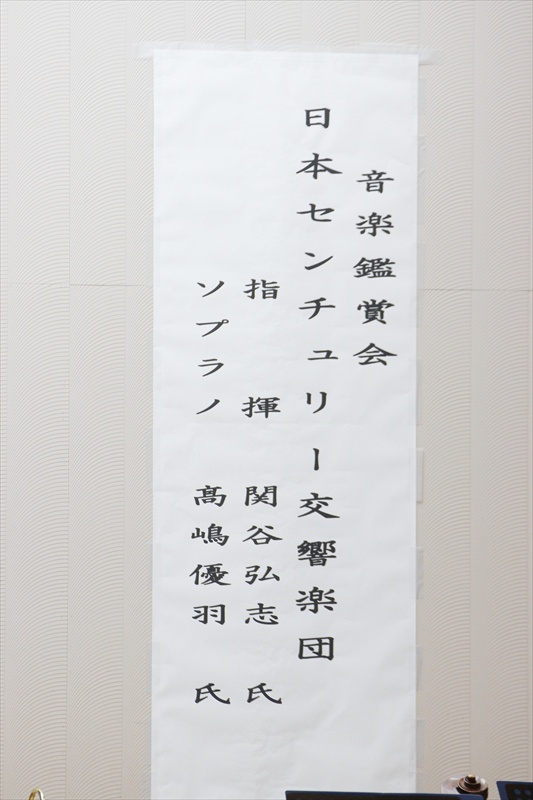 音楽鑑賞会
日本センチュリー交響楽団
指 揮 関谷弘志 氏
ソプラノ 高嶋優羽 氏